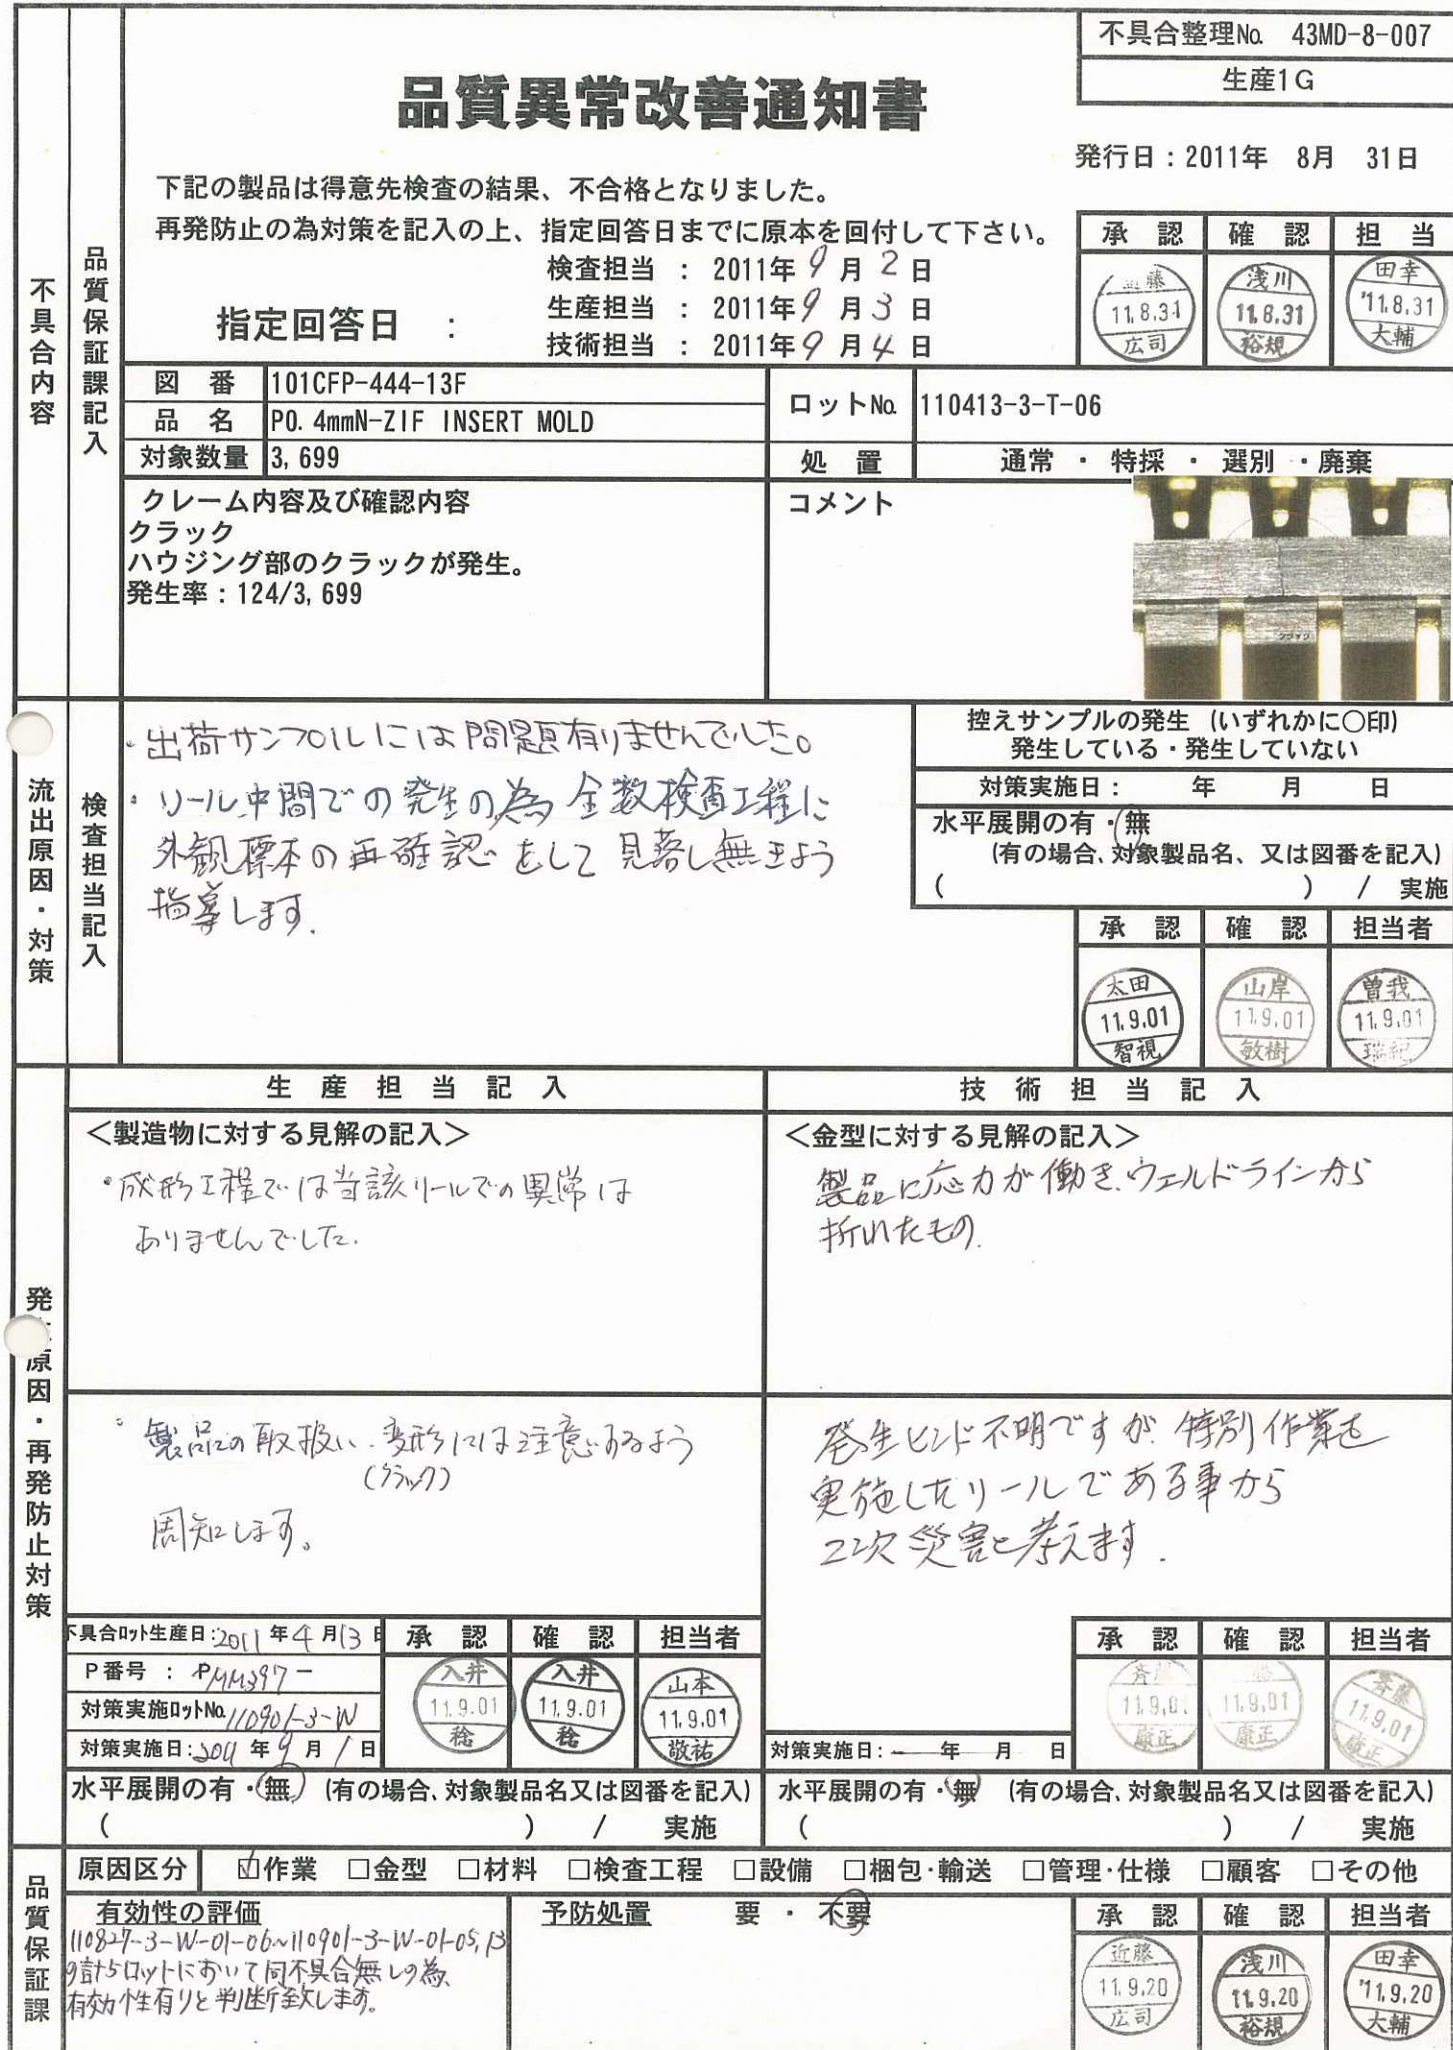 不具合整理No. 43MD-8-007
生産1G
品質異常改善通知書
発行日：2011年 8月 31日
下記の製品は得意先検査の結果、不合格となりました。
再発防止の為対策を記入の上、指定回答日までに原本を回付して下さい。
指定回答日 ：
検査担当 ： 2011年 9月 2日
生産担当 ： 2011年 9月 3日
技術担当 ： 2011年 9月 4日
承認 確認 担当
近藤 11.8.31 広司
浅川 11.8.31 裕規
田幸 '11.8.31 大輔
不具合内容
品質保証課記入
図番 101CFP-444-13F
品名 P0.4mmN-ZIF INSERT MOLD
対象数量 3,699
ロットNo. 110413-3-T-06
処置 通常 ・ 特採 ・ 選別 ・ 廃棄
クレーム内容及び確認内容
クラック
ハウジング部のクラックが発生。
発生率：124/3,699
コメント
クラック
流出原因・対策
検査担当記入
・出荷サンプルには問題有りませんでした。
・リール中間での発生の為 全数検査工程に
外観標本の再確認をして 見落し無きよう
指導します.
控えサンプルの発生 (いずれかに○印)
発生している・発生していない
対策実施日： 年 月 日
水平展開の有・無
(有の場合、対象製品名、又は図番を記入)
( ) / 実施
承認 確認 担当者
太田 11.9.01 智視
山岸 11.9.01 敏樹
曽我 11.9.01 瑞紀
発生原因・再発防止対策
生産担当記入
＜製造物に対する見解の記入＞
・成形工程では当該リールでの異常は
ありませんでした.
・製品の取扱い、変形には注意するよう
(クラック)
周知します。
不具合ロット生産日：2011年4月13日
P番号 ： PMM397-
対策実施ロットNo. 110901-3-W
対策実施日：2011年9月1日
承認 確認 担当者
入井 11.9.01 稔
入井 11.9.01 稔
山本 11.9.01 敬祐
水平展開の有・無 (有の場合、対象製品名又は図番を記入)
( ) / 実施
技術担当記入
＜金型に対する見解の記入＞
製品に応力が働き、ウェルドラインから
折れたもの.
発生ヒンド不明ですが、特別作業を
実施したリールである事から
2次災害と考えます.
承認 確認 担当者
斉藤 11.9.01 康正
藤 11.9.01 康正
斉藤 11.9.01 康正
対策実施日：ー 年 月 日
水平展開の有・無 (有の場合、対象製品名又は図番を記入)
( ) / 実施
品質保証課
原因区分 ☑作業 □金型 □材料 □検査工程 □設備 □梱包・輸送 □管理・仕様 □顧客 □その他
有効性の評価
110827-3-W-01-06~110901-3-W-01-05,13
の計5ロットにおいて同不具合無しの為、
有効性有りと判断致します。
予防処置 要 ・ 不要
承認 確認 担当者
近藤 11.9.20 広司
浅川 11.9.20 裕規
田幸 '11.9.20 大輔